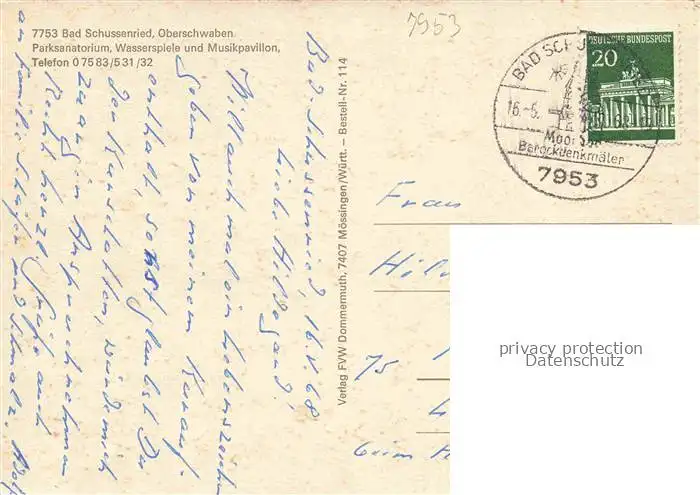 7753 Bad Schussenried, Oberschwaben
Parksanatorium, Wasserspiele und Musikpavillon,
Telefon 0 75 83/5 31 /32
7953
DEUTSCHE BUNDESPOST
20
BAD SCHUS
16.-5.
Moor
Barockdenkmäler
7953
Verlag FVW Dommermuth, 7407 Mössingen/Württ. – Bestell-Nr. 114
Bad-Schussenried, 16.V.68
Liebe Hildegard!
Will auch mal ein Lebenszeichen
Geben von meinem Kurauf-
enthalt, sonst glaubst Du
der Kurschatten, würde mich
ganz in Anspruch nehmen
Recht herzl. Grüße auch
an Familie Schäfer und Schmalz.
Frau
75
beim
privacy protection
Datenschutz